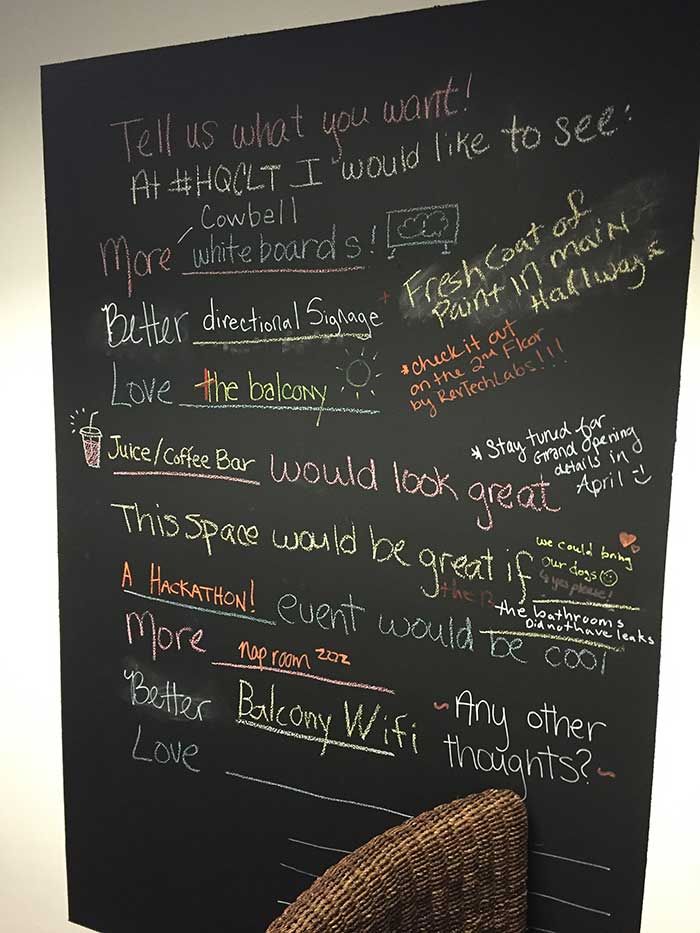 Tell us what you want!
At #HQCLT I would like to see:
Cowbell
More whiteboards!
Fresh Coat of
Paint In main
Hallway
Better directional Signage
*check it out
on the 2nd Floor
by RevTechLabs!!!
Love the balcony
Juice/Coffee Bar would look great
* Stay tuned for
Grand Opening
details in
April
This space would be great if
we could bring
our dogs
yes please!
the bathrooms
Did not have leaks
A HACKATHON! event would be cool
More nap room zzz
Better Balcony Wifi
~Any other
thoughts?~
Love